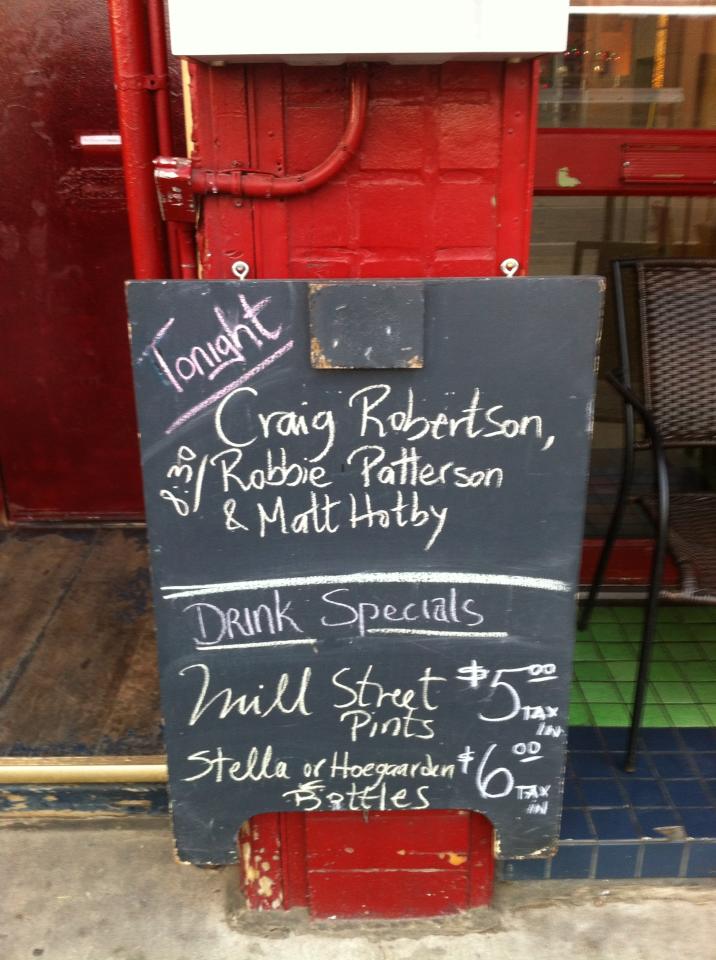 Tonight
Craig Robertson,
8:30/ Robbie Patterson
& Matt Hotby
Drink Specials
Mill Street $5.00
Pints TAX IN
Stella or Hoegaarden $6.00
Bottles TAX IN